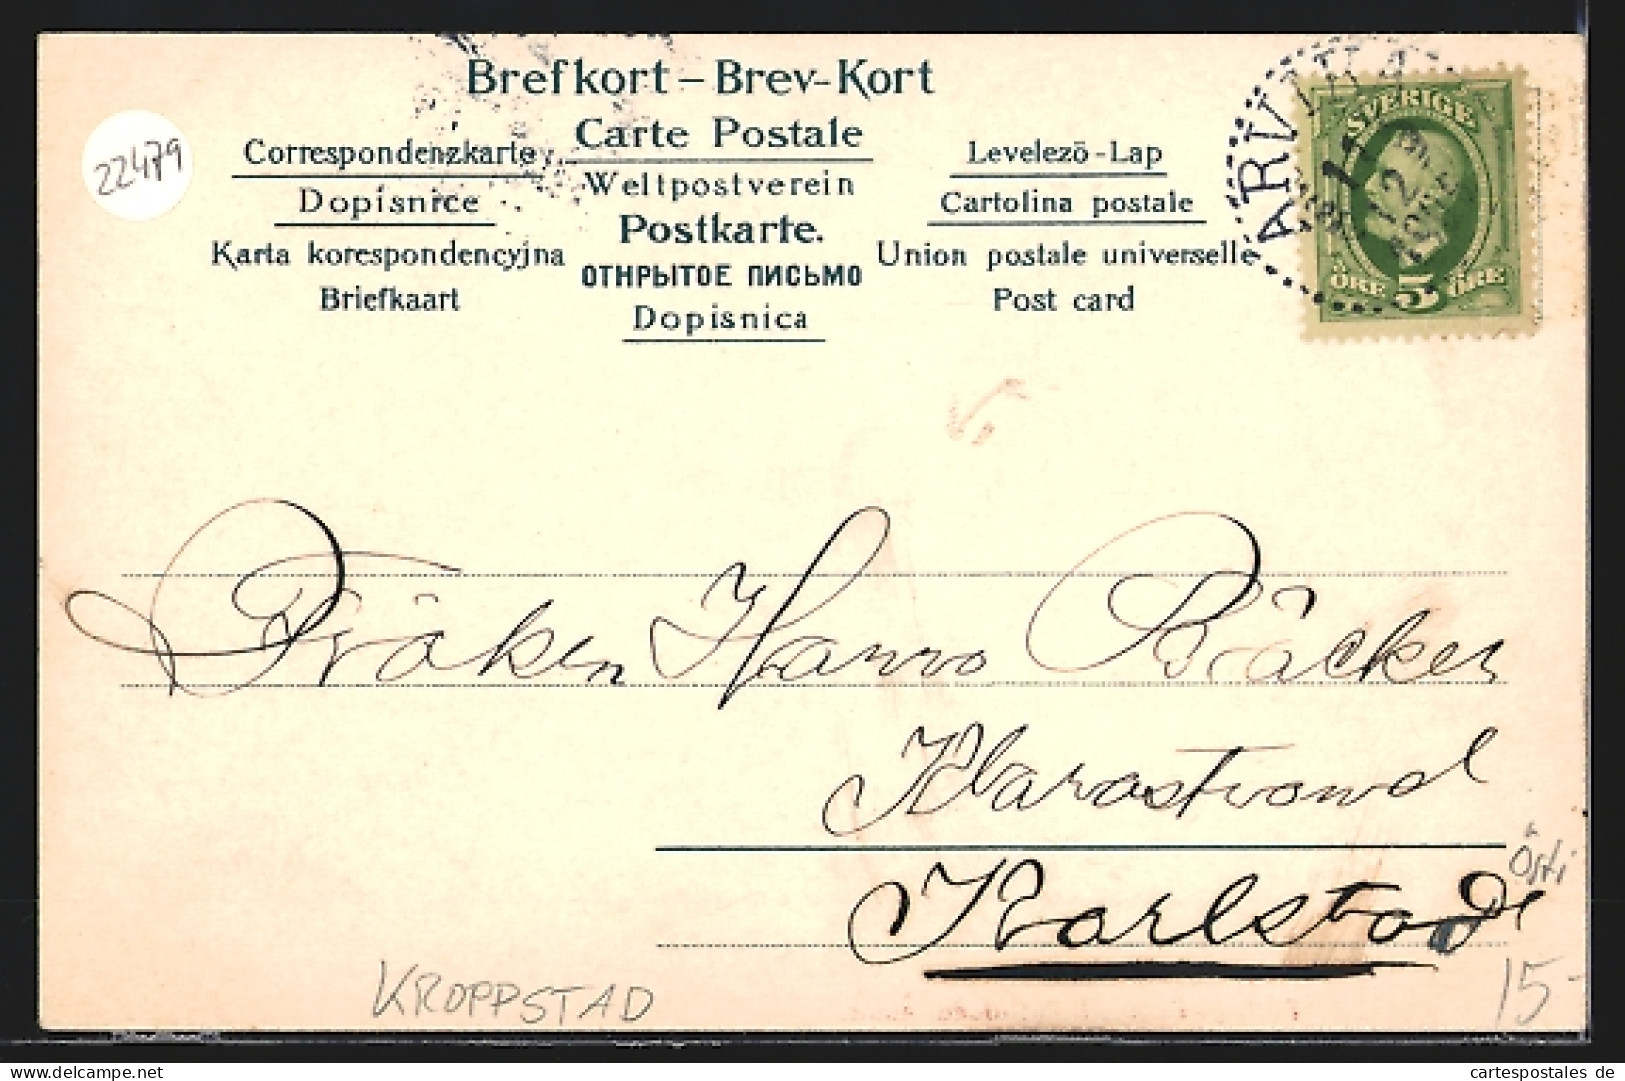 Brefkort – Brev-Kort
Carte Postale
Weltpostverein
Postkarte.
ОТНРЫТОЕ ПИСЬМО
Dopisnica
Correspondenzkarte
Dopisnice
Karta korespondencyjna
Briefkaart
Levelezö-Lap
Cartolina postale
Union postale universelle
Post card
22479
ARVIKA
SVERIGE
ÖRE 5 ÖRE
Fröken Hanna Bäcker
Klarastrand
Karlstad
KROPPSTAD
15-
cartespostales de